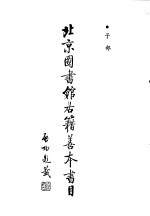 •子部
北京圖書館古籍善本書目
啟功題籤